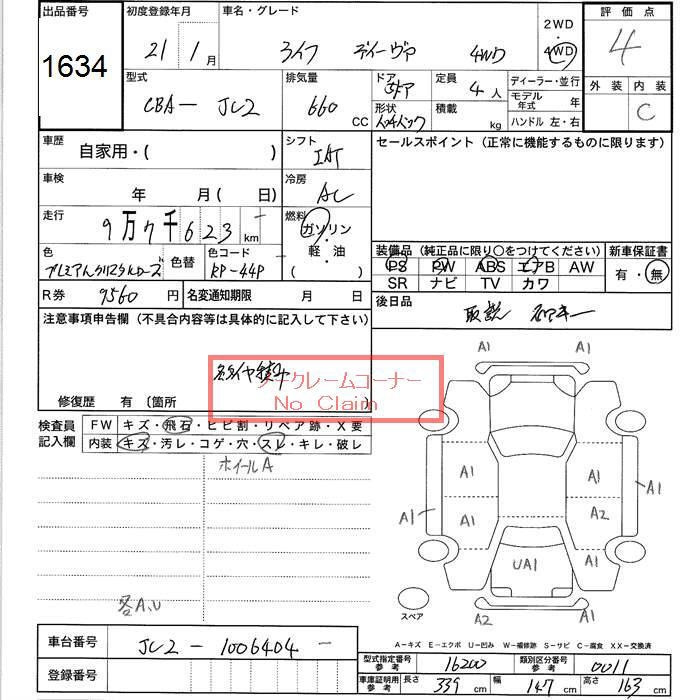 出品番号 初度登録年月 車名・グレード 2WD 評価点
1634 21 1月 ライフ ディーヴァ 4WD 4WD 4
型式 排気量 ドア 5ドア 定員 4人 ディーラー・並行 外装 内装
CBA- JC2 660 CC 形状 積載 kg モデル年式 年 C
ハンドル 左・右
車歴 自家用・( ) シフト IAT セールスポイント (正常に機能するものに限ります)
車検 年 月( 日) 冷房 AC
走行 9万7千623 km 燃料 ガソリン・軽油 ( )
装備品 (純正品に限り○をつけてください) 新車保証書
色 色替 色コード RP-44P PS PW ABS エアB AW 有・無
SR ナビ TV カワ
R券 9560円 名変通知期限 月 日 後日品 取説
注意事項申告欄 (不具合内容等は具体的に記入して下さい)
ノークレームコーナー
No Claim
修復歴 有 〔箇所
検査員記入欄 FW キズ・飛石・ヒビ割・リペア跡・X要
内装 キズ・汚レ・コゲ・穴・スレ・キレ・破レ
ホイールA
各A,U
A1
A1
A1 A1
A1
A1 A1 A2
UA1 A1
スペア A2 A1
A-キズ E-エクボ U-凹み W-補修跡 S-サビ C-腐食 XX-交換済
車台番号 JC2-1006404-
登録番号
型式指定番号参考 16200 類別区分番号参考 0011
車庫証明用参考 長さ 339 cm 幅 147 cm 高さ 163 cm